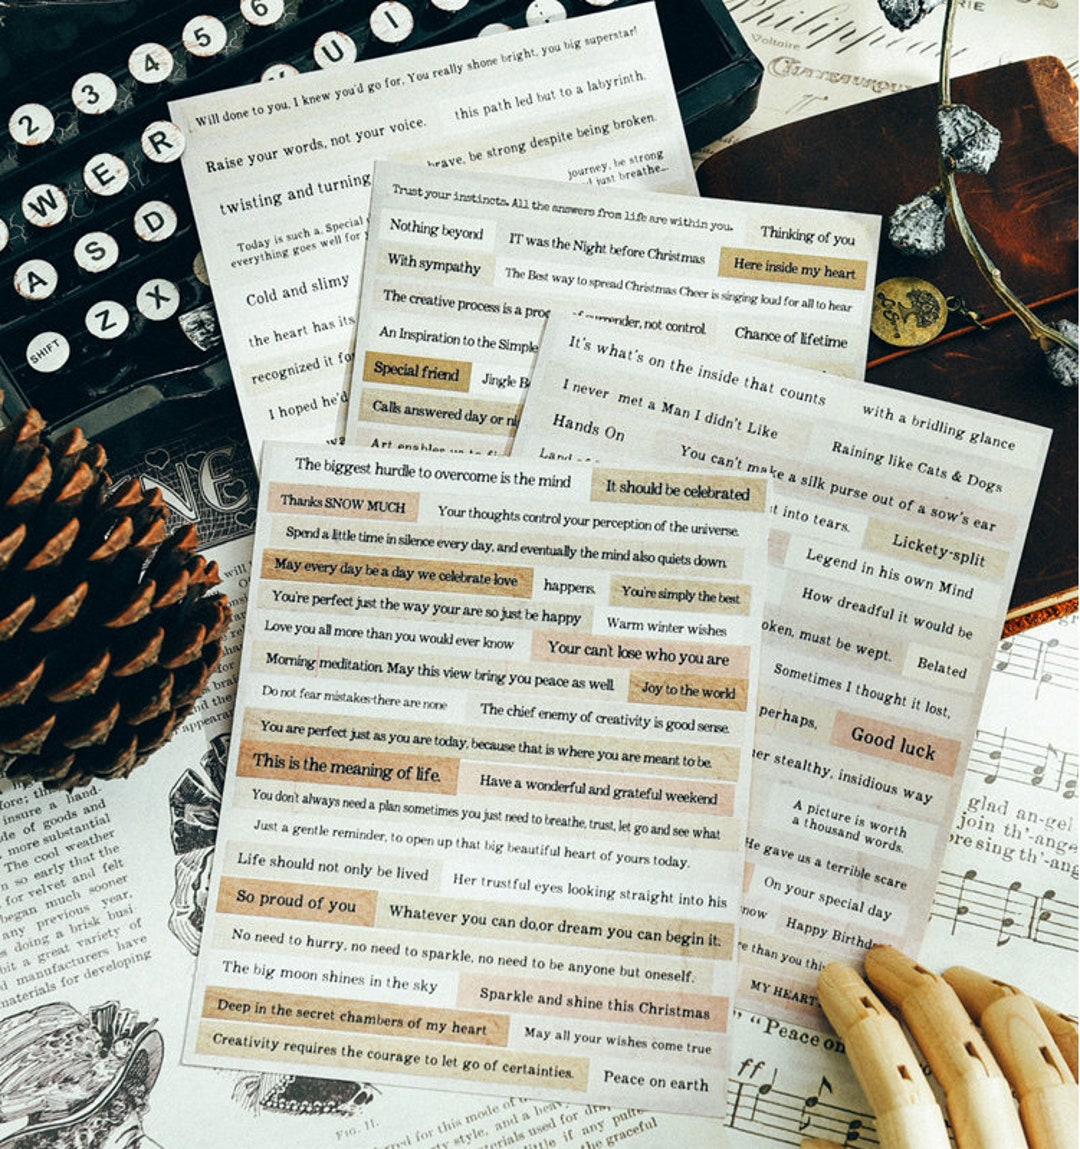 2 3 4 5 6
W E R U I
A S D
SHIFT Z X
Voltaire
Will done to you, I knew you'd go for, You really shone bright, you big superstar!
Raise your words, not your voice.
this path led but to a labyrinth.
twisting and turning
brave, be strong despite being broken.
journey, be strong
just breathe...
Today is such a, Special
everything goes well for
Cold and slimy
the heart has its
recognized it fo
I hoped he'd
Trust your instincts. All the answers from life are within you.
Thinking of you
Nothing beyond
IT was the Night before Christmas
Here inside my heart
With sympathy
The Best way to spread Christmas Cheer is singing loud for all to hear
The creative process is a proc
of surrender, not control.
Chance of lifetime
An Inspiration to the Simple
Special friend
Jingle B
Calls answered day or ni
It's what's on the inside that counts
with a bridling glance
I never met a Man I didn't Like
Raining like Cats & Dogs
Hands On
You can't make a silk purse out of a sow's ear
Land of
t into tears.
Lickety-split
Legend in his own Mind
How dreadful it would be
oken, must be wept.
Belated
Sometimes I thought it lost,
perhaps,
Good luck
er stealthy, insidious way
A picture is worth
a thousand words.
He gave us a terrible scare
On your special day
now
Happy Birthd
re than you this
MY HEART
The biggest hurdle to overcome is the mind
It should be celebrated
Thanks SNOW MUCH
Your thoughts control your perception of the universe.
Spend a little time in silence every day, and eventually the mind also quiets down.
May every day be a day we celebrate love
happens.
You're simply the best
You're perfect just the way your are so just be happy
Warm winter wishes
Love you all more than you would ever know
Your can't lose who you are
Morning meditation. May this view bring you peace as well.
Joy to the world
Do not fear mistakes-there are none
The chief enemy of creativity is good sense.
You are perfect just as you are today, because that is where you are meant to be.
This is the meaning of life.
Have a wonderful and grateful weekend
You don't always need a plan sometimes you just need to breathe, trust, let go and see what
Just a gentle reminder, to open up that big beautiful heart of yours today.
Life should not only be lived
Her trustful eyes looking straight into his
So proud of you
Whatever you can do,or dream you can begin it.
No need to hurry, no need to sparkle, no need to be anyone but oneself.
The big moon shines in the sky
Sparkle and shine this Christmas
Deep in the secret chambers of my heart
May all your wishes come true
Creativity requires the courage to let go of certainties.
Peace on earth
insure a hand-
le of goods and
more substantial
The cool weather
n so early that the
for velvet and felt
began much sooner
any previous year,
doing a brisk busi
bit a great variety of
d manufacturers have
materials for developing
FIG. 11.
rred for this mode of
ty style, and a heav
terials used for
little if any puffe
the graceful
glad an-gel
join th'-ange
ore sing th'-ang
" "Peace on
ff